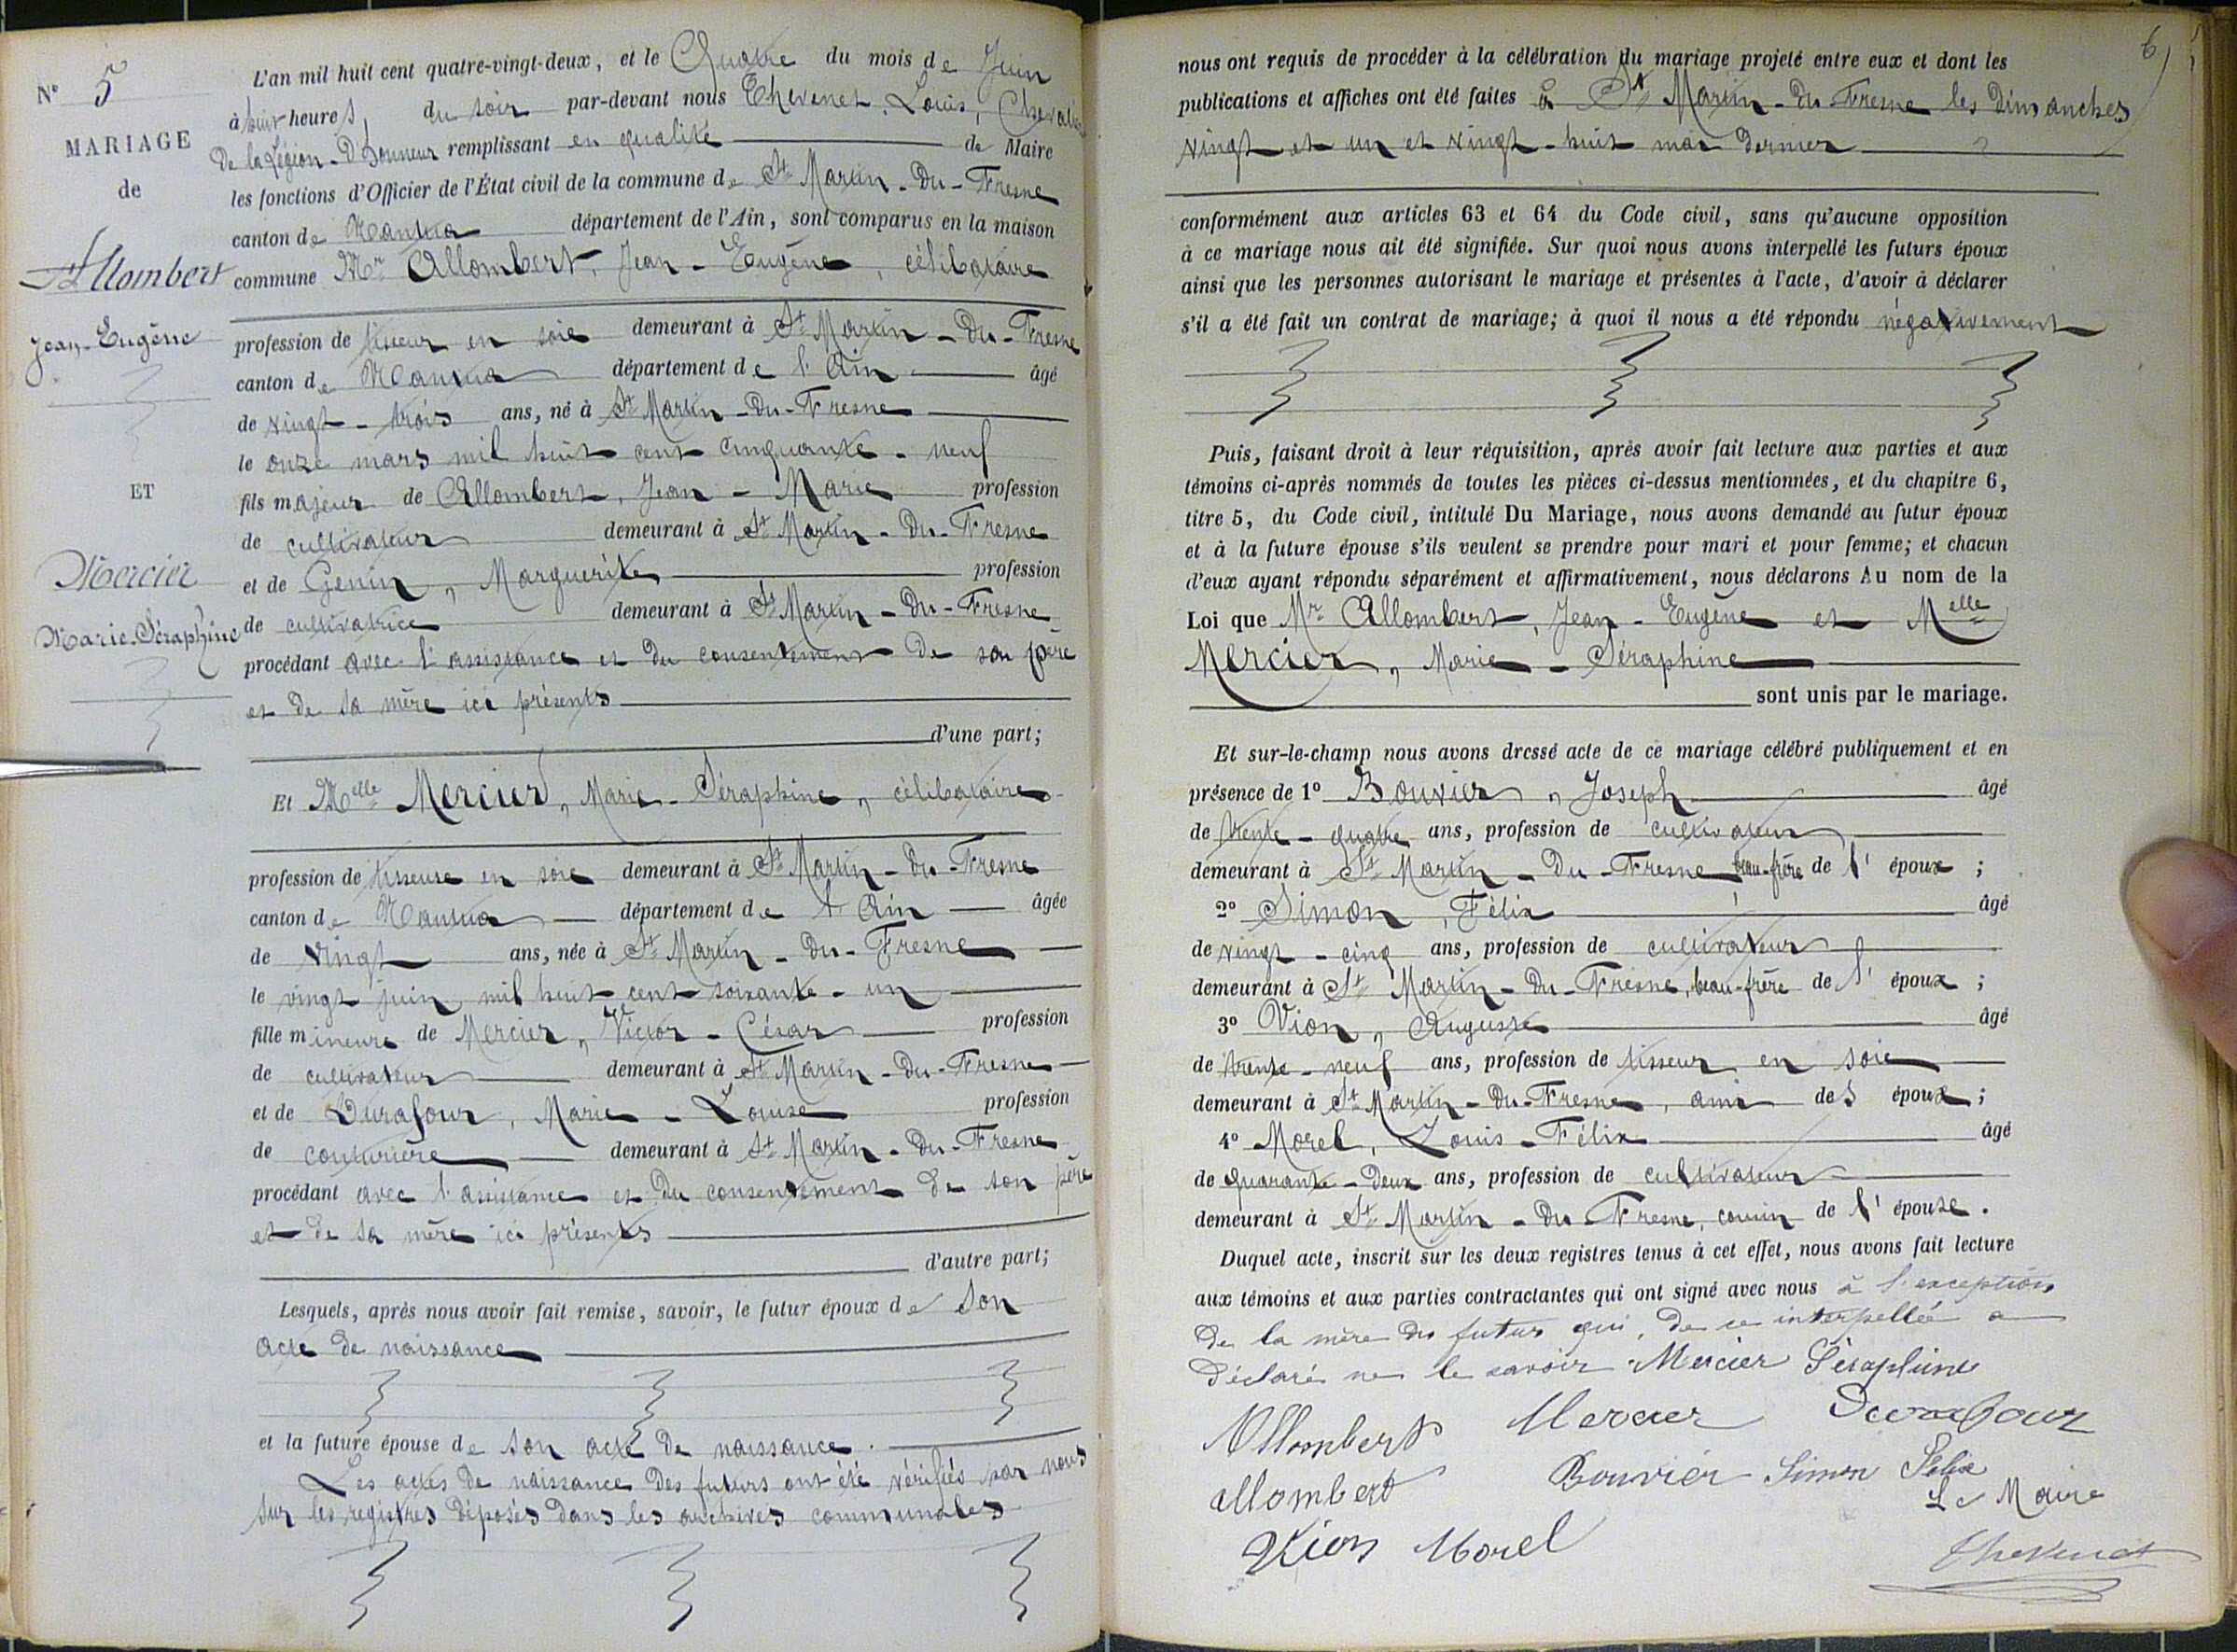 N° 5
MARIAGE
de
Allombert
Jean-Eugène
ET
Mercier
Marie-Séraphine
L'an mil huit cent quatre-vingt-deux, et le Quatre du mois de Juin
à huit heures, du soir par-devant nous Thevenet, Louis, Chevalier
De la Légion-D'honneur remplissant en qualité de Maire
les fonctions d'Officier de l'État civil de la commune de St Martin-Du-Fresne
canton de Nantua département de l'Ain, sont comparus en la maison
commune Mr Allombert, Jean-Eugène, célibataire
profession de tisseur en soie demeurant à St Martin-Du-Fresne
canton de Nantua département de l'Ain âgé
de vingt-trois ans, né à St Martin-Du-Fresne
le onze mars mil huit cent cinquante-neuf
fils majeur de Allombert, Jean-Marie profession
de cultivateur demeurant à St Martin-Du-Fresne
et de Genin, Marguerite profession
de cultivatrice demeurant à St Martin-Du-Fresne
procédant avec l'assistance et du consentement de son père
et de sa mère ici présents
d'une part;
Et Melle Mercier, Marie-Séraphine, célibataire
profession de tisseuse en soie demeurant à St Martin-Du-Fresne
canton de Nantua département de l'Ain âgée
de vingt ans, née à St Martin-Du-Fresne
le vingt juin mil huit cent soixante-un
fille mineure de Mercier, Victor-César profession
de cultivateur demeurant à St Martin-Du-Fresne
et de Durafour, Marie-Louise profession
de couturière demeurant à St Martin-Du-Fresne
procédant avec l'assistance et du consentement de son père
et de sa mère ici présents
d'autre part;
Lesquels, après nous avoir fait remise, savoir, le futur époux de son
acte de naissance
et la future épouse de son acte de naissance.
Les actes de naissance des futurs ont été vérifiés par nous
sur les registres déposés dans les archives communales
6
nous ont requis de procéder à la célébration du mariage projeté entre eux et dont les
publications et affiches ont été faites à St Martin-du-Fresne les Dimanches
vingt et un et vingt-huit mai dernier
conformément aux articles 63 et 64 du Code civil, sans qu'aucune opposition
à ce mariage nous ait été signifiée. Sur quoi nous avons interpellé les futurs époux
ainsi que les personnes autorisant le mariage et présentes à l'acte, d'avoir à déclarer
s'il a été fait un contrat de mariage; à quoi il nous a été répondu négativement
Puis, faisant droit à leur réquisition, après avoir fait lecture aux parties et aux
témoins ci-après nommés de toutes les pièces ci-dessus mentionnées, et du chapitre 6,
titre 5, du Code civil, intitulé Du Mariage, nous avons demandé au futur époux
et à la future épouse s'ils veulent se prendre pour mari et pour femme; et chacun
d'eux ayant répondu séparément et affirmativement, nous déclarons Au nom de la
Loi que Mr Allombert, Jean-Eugène et Melle
Mercier, Marie-Séraphine
sont unis par le mariage.
Et sur-le-champ nous avons dressé acte de ce mariage célébré publiquement et en
présence de 1° Bouvier, Joseph âgé
de trente-quatre ans, profession de cultivateur
demeurant à St Martin-Du-Fresne beau-frère de l'époux;
2° Simon, Félix âgé
de vingt-cinq ans, profession de cultivateur
demeurant à St Martin-Du-Fresne, beau-frère de l'époux;
3° Vion, Auguste âgé
de trente-neuf ans, profession de tisseur en soie
demeurant à St Martin-Du-Fresne, ami des époux;
4° Morel, Louis-Félix âgé
de Quarante-Deux ans, profession de cultivateur
demeurant à St Martin-Du-Fresne, cousin de l'épouse.
Duquel acte, inscrit sur les deux registres tenus à cet effet, nous avons fait lecture
aux témoins et aux parties contractantes qui ont signé avec nous à l'exception
de la mère du futur qui, de ce interpellée a
déclaré ne le savoir Mercier Séraphine
Allombert Mercier Durafour
allombert Bouvier Simon Félix
Le Maire
Vion Morel
Thevenet